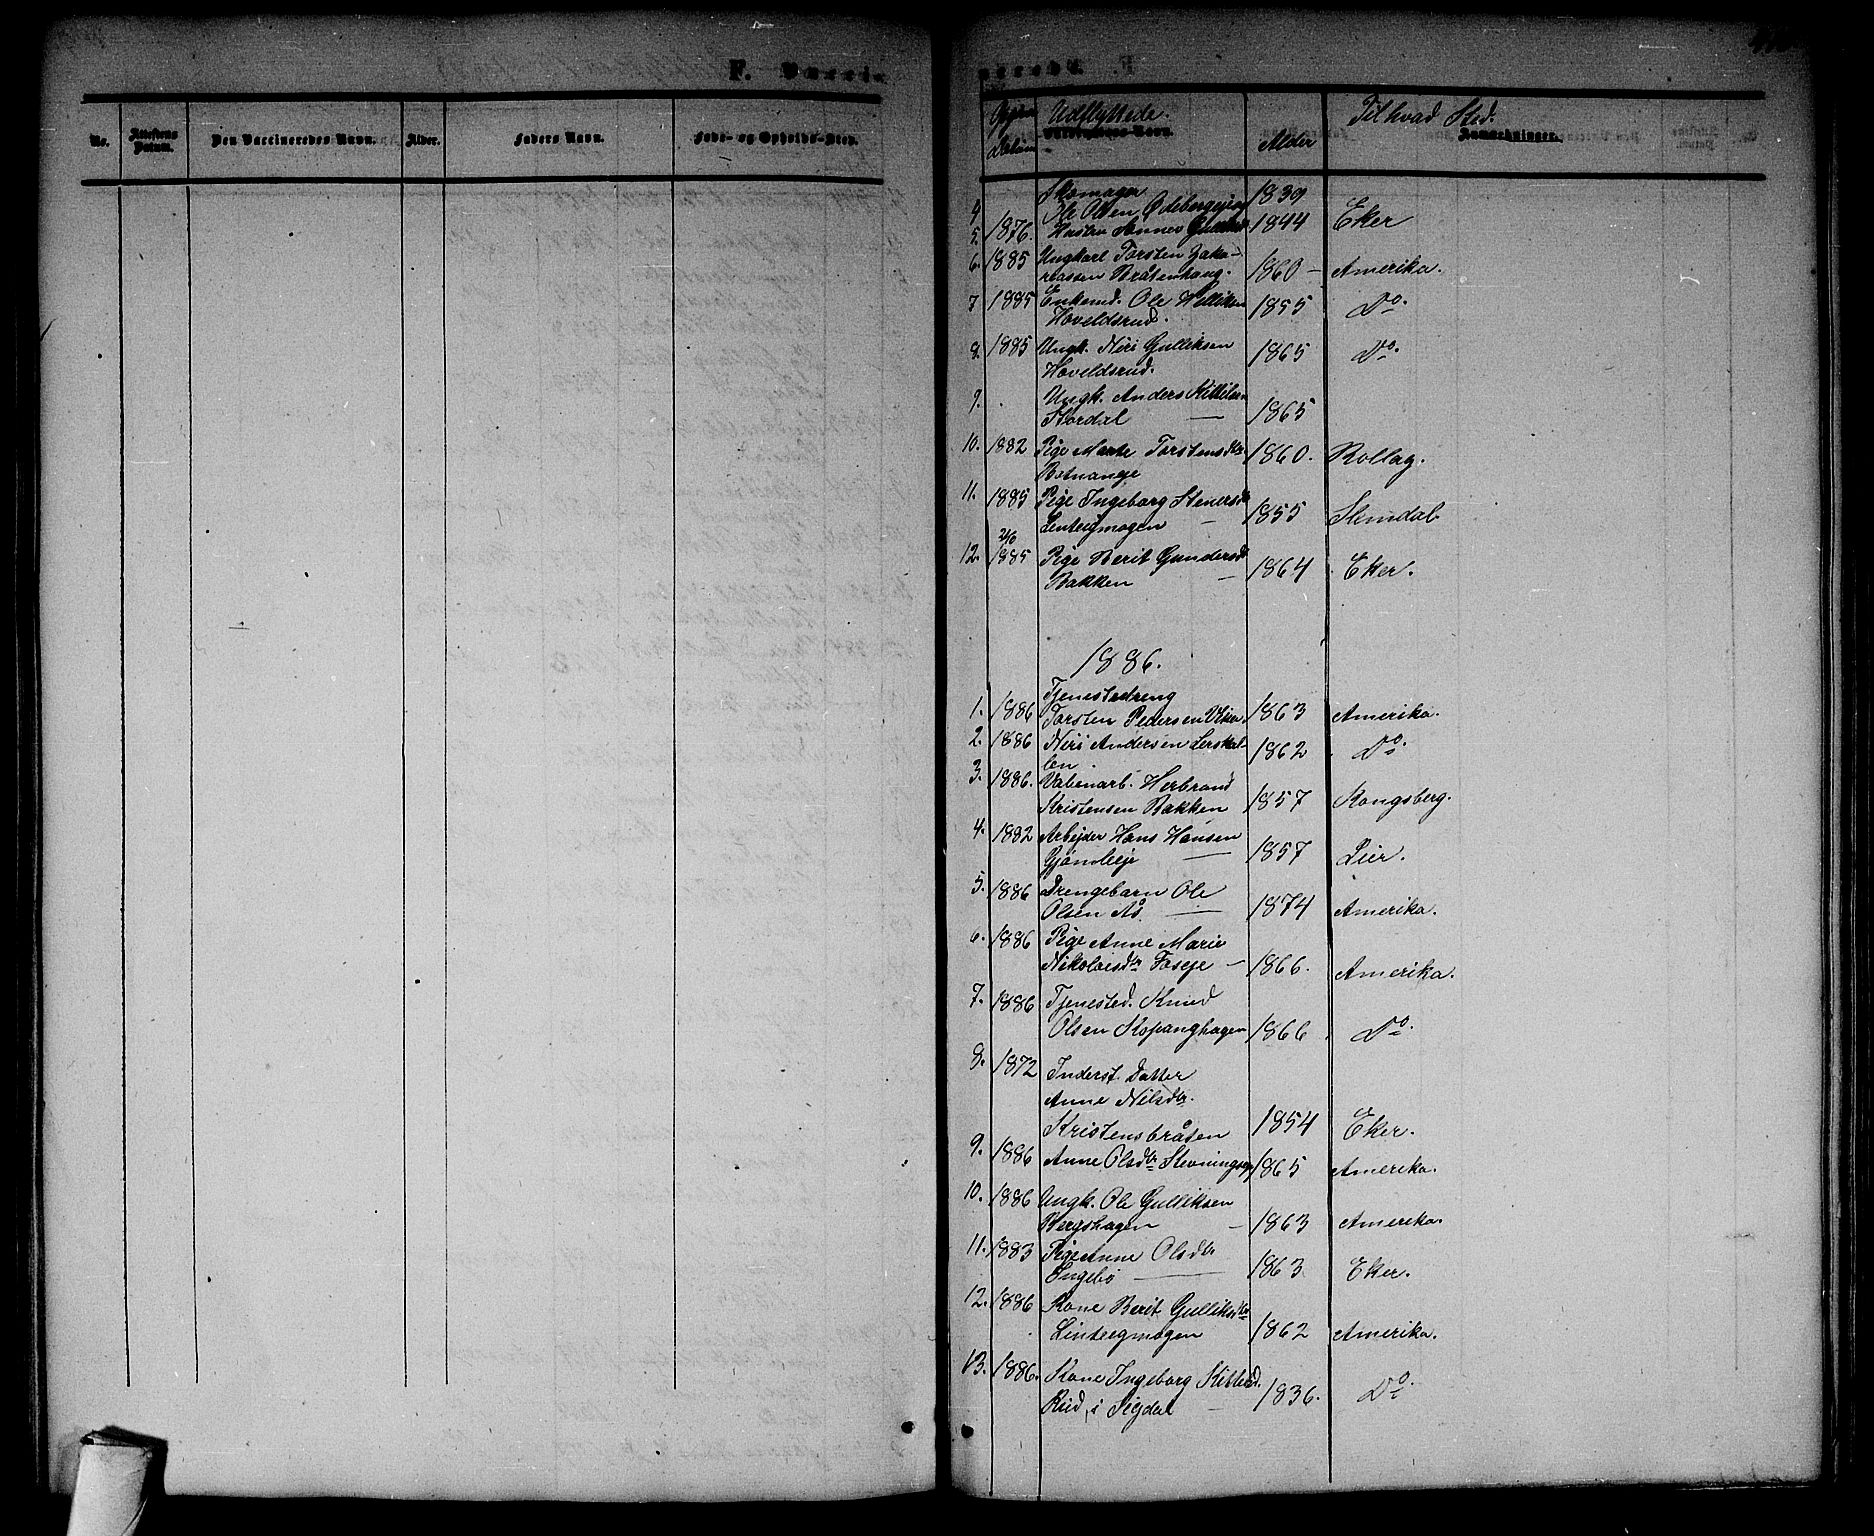 F. Vacci-
No.
Attestens Datum.
Den Vaccineredes Navn.
Alder.
Faders Navn.
Føde- og Opholds-Sted.
Datum
Udflyttede.
Alder
Til hvad Sted.
Anmærkninger.
Skomager 1839
4 Ole Olsen
5. 1876. Hustru 1844 Eker
6. 1885 Ungkarl Torsten Zaka-
riassen Bråtenhaug. 1860 — Amerika.
7 1885 Enkemd. Ole
Hoveldsrud. 1855 Do.
8. 1885 Ungk. Niri Gulliksen
Hoveldsrud. 1865 Do.
9. Ungk. Anders Kittilsen
Stordal — 1865
10. 1882 Pige Marte Torstensdtr
1860. Rollag.
11. 1885 Pige Ingeborg Stenersdtr
1855 Slemdal
12. 1885 Pige Berit Gundersd
Bakken — 1864 Eker.
1886.
Tjenestedreng
1. 1886 Torsten Pedersen 1863 Amerika.
2. 1886 Niri Andersen Lerskal-
len. 1862 Do.
3. 1886. Våbenarb. Herbrand
Kristensen Bakken 1857 Kongsberg.
4. 1882 Arbejder Hans Hansen
— 1857 Lier.
5. 1886 Drengebarn Ole
Olsen Ås. — 1874 Amerika.
6. 1886 Pige Anne Marie
Nikolaisdtr Foseje — 1866. Amerika.
7. 1886 Tjenested. Knud
Olsen Kopanghagen 1866. Do.
8. 1872 Inderst. Datter
Anne Nilsdtr.
Kristensbråten 1854 Eker.
9. 1886 Anne Olsdtr 1865 Amerika.
10. 1886 Ungk. Ole Gulliksen
Bergshagen — 1863 Amerika.
11. 1883 Pige Anne Olsdtr
Engebø — 1863 Eker.
12. 1886 Kone Berit Gulliksdtr
1862 Amerika.
13. 1886. Kone Ingeborg Kittilsd.
Rud, i Sigdal — 1836. Do.